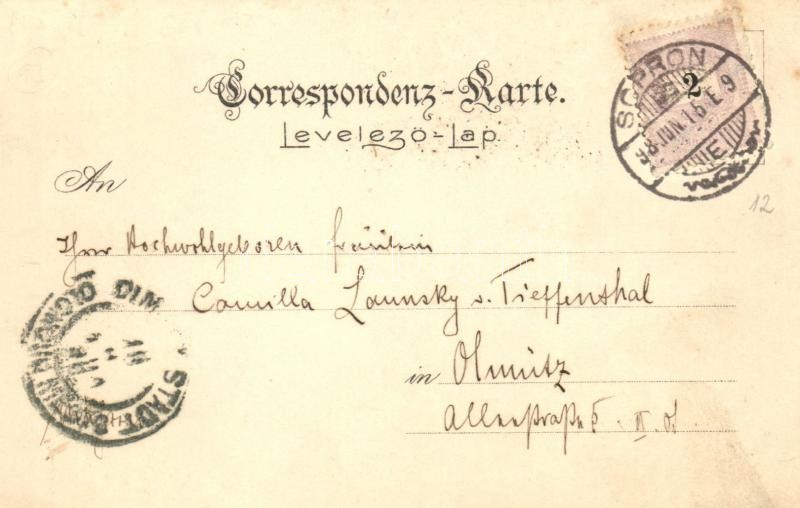 Correspondenz-Karte.
Levelező-Lap
An
SOPRON
2
12
Ihrer Hochwohlgeboren Fräulein
Camilla Launsky v. Tieffenthal
in Olmütz
Alleestraße 5. II. St.
STADT